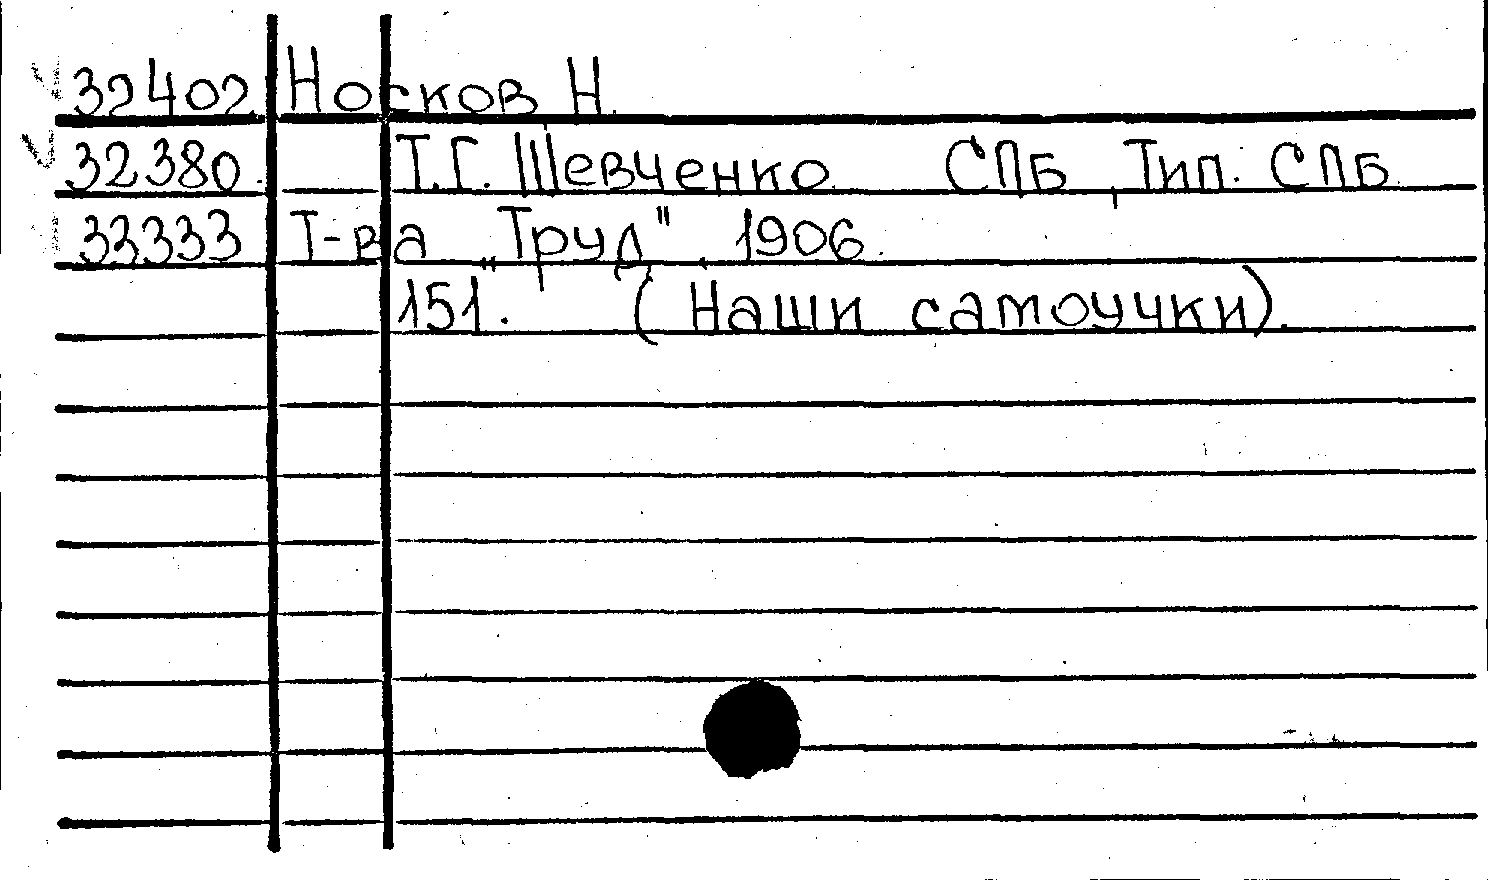 32402 Носков Н.
32380. Т.Г. Шевченко СПБ, Тип. СПБ
33333 Т-ва „Труд", 1906.
151. (Наши самоучки).